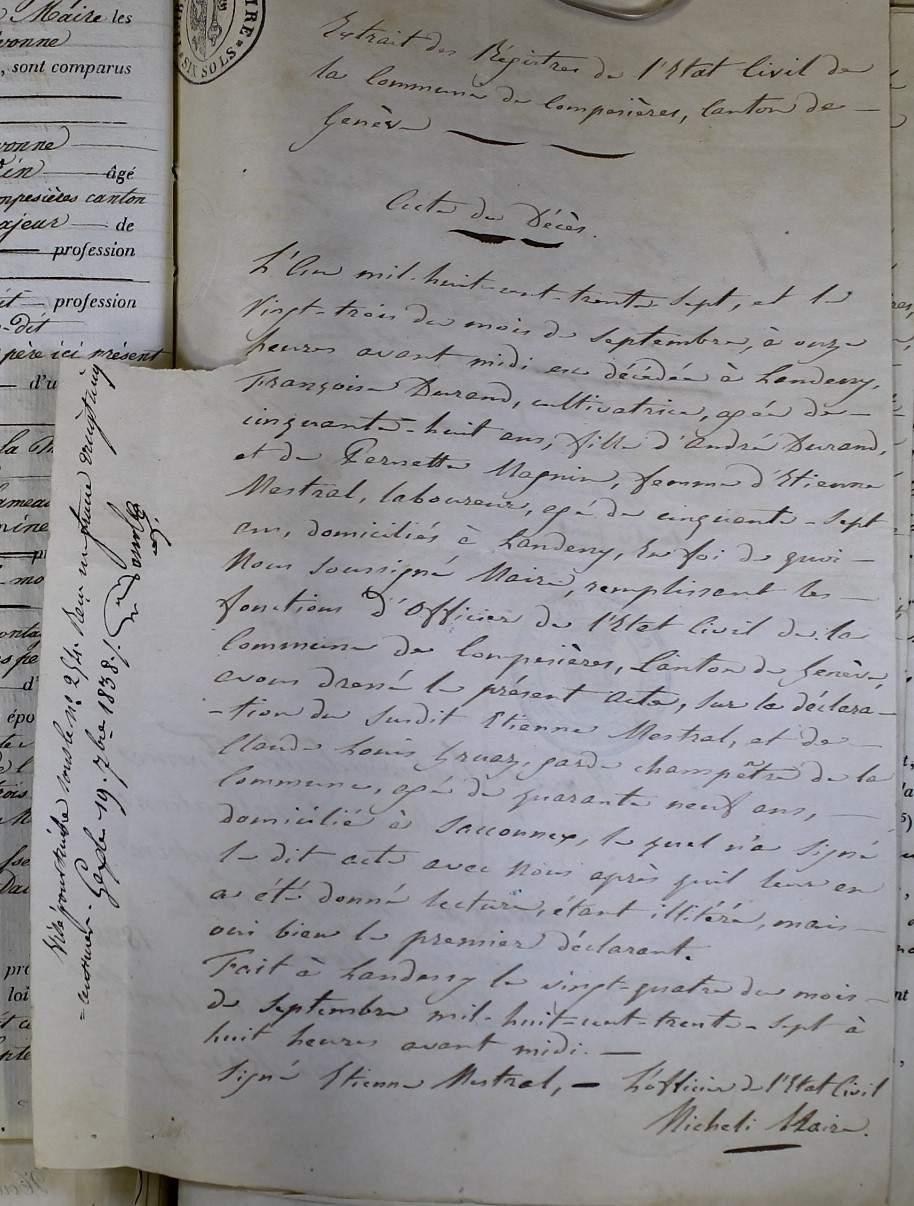 Maire les
, sont comparus
âgé
canton
de
profession
profession
père ici présent
d'u
IRE
SIX SOLS
Extrait des Régistres de l'Etat Civil de
la Commune de Compesières, Canton de
Genève
Acte de Décès.
L'An mil-huit-cent-trente sept, et le
Vingt-trois du mois de septembre, à onze
heures avant midi est décédée à Landecy,
Françoise Durand, cultivatrice, agée de
cinquante-huit ans, fille d'André Durand,
et de Pernette Magnin, femme d'Etienne
Mestral, laboureur, agé de cinquante-sept
ans, domiciliés à Landecy, En foi de quoi
Nous Soussigné Maire, remplissant les
fonctions d'Officier de l'Etat Civil de la
Commune de Compesières, Canton de Genève,
avons dressé le présent acte, sur la déclara-
-tion du susdit Etienne Mestral, et de
Claude Louis Gruaz, garde champêtre de la
Commune, agé de quarante neuf ans,
domicilié à Sacconnex, le quel n'a signé
le dit acte avec Nous après qu'il leur en
a été donné lecture, étant illitéré, mais
oui bien le premier déclarant.
Fait à Landecy le vingt-quatre du mois
de septembre mil-huit-cent-trente-sept à
huit heures avant midi.
Signé Etienne Mestral, L'officier de l'Etat Civil
Micheli Maire.
Visé pour timbre sous le n° 214. Reçu trente cinq
centimes. Gex le 19. 7bre 1838.